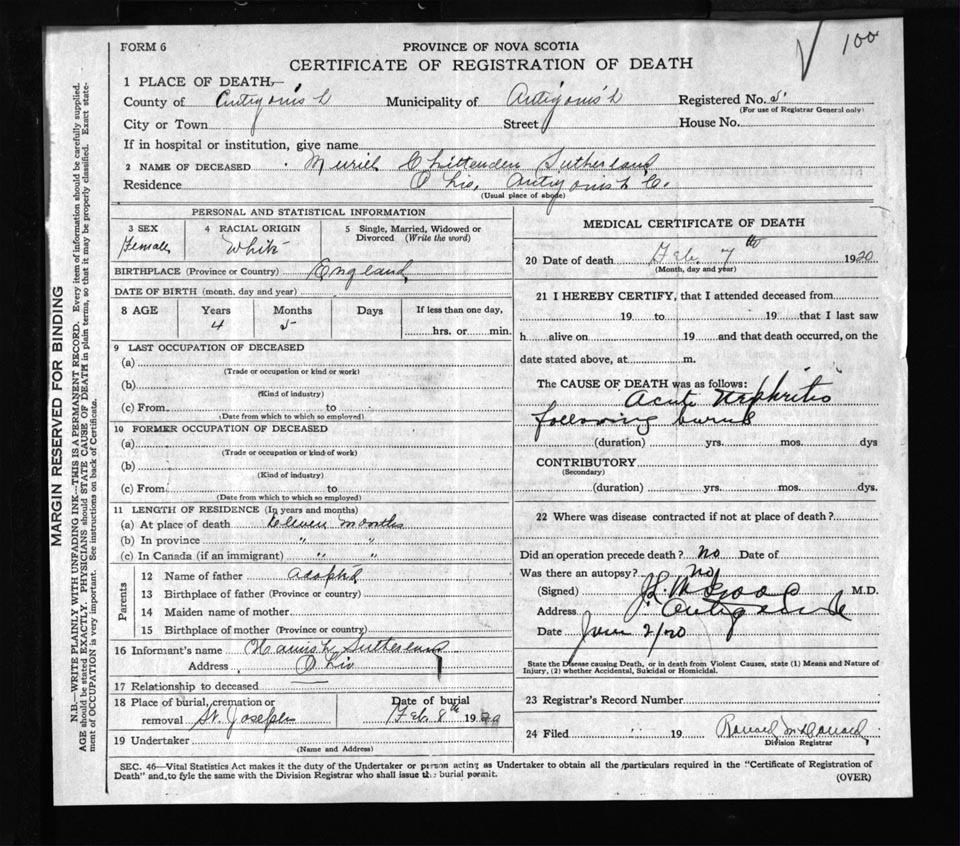 FORM 6
PROVINCE OF NOVA SCOTIA
100
CERTIFICATE OF REGISTRATION OF DEATH
1 PLACE OF DEATH—
County of Antigonish Municipality of Antigonish Registered No. 5
(For use of Registrar General only)
City or Town Street House No.
If in hospital or institution, give name
2 NAME OF DECEASED Muriel Chittenden Sutherland
Residence Ohio, Antigonish Co.
(Usual place of abode)
PERSONAL AND STATISTICAL INFORMATION
3 SEX 4 RACIAL ORIGIN 5 Single, Married, Widowed or
Divorced (Write the word)
Female White
BIRTHPLACE (Province or Country) England
DATE OF BIRTH (month, day and year)
8 AGE Years Months Days If less than one day,
4 5 hrs. or min.
9 LAST OCCUPATION OF DECEASED
(a)
(Trade or occupation or kind or work)
(b)
(Kind of industry)
(c) From to
(Date from which to which so employed)
10 FORMER OCCUPATION OF DECEASED
(a)
(Trade or occupation or kind of work)
(b)
(Kind of industry)
(c) From to
(Date from which to which so employed)
11 LENGTH OF RESIDENCE (In years and months)
(a) At place of death Eleven months
(b) In province " "
(c) In Canada (if an immigrant) " "
Parents
12 Name of father adopted
13 Birthplace of father (Province or country)
14 Maiden name of mother
15 Birthplace of mother (Province or country)
16 Informant's name Sutherland
Address Ohio
17 Relationship to deceased
18 Place of burial, cremation or Date of burial
removal St. Josephs Feb. 8th 1920
19 Undertaker
(Name and Address)
MEDICAL CERTIFICATE OF DEATH
20 Date of death Feb. 7th 1920
(Month, day and year)
21 I HEREBY CERTIFY, that I attended deceased from
19 to 19 that I last saw
h alive on 19 and that death occurred, on the
date stated above, at m.
The CAUSE OF DEATH was as follows:
Acute Nephritis
following
(duration) yrs. mos. dys
CONTRIBUTORY
(Secondary)
(duration) yrs. mos. dys.
22 Where was disease contracted if not at place of death?
Did an operation precede death? No Date of
Was there an autopsy? No
(Signed) M.D.
Address Antigonish
Date 2/20
State the Disease causing Death, or in death from Violent Causes, state (1) Means and Nature of
Injury, (2) whether Accidental, Suicidal or Homicidal.
23 Registrar's Record Number
24 Filed " 19
Division Registrar
SEC. 46—Vital Statistics Act makes it the duty of the Undertaker or person acting as Undertaker to obtain all the particulars required in the "Certificate of Registration of
Death" and to fyle the same with the Division Registrar who shall issue the burial permit.
(OVER)
MARGIN RESERVED FOR BINDING
N.B.—WRITE PLAINLY WITH UNFADING INK—THIS IS A PERMANENT RECORD. Every item of information should be carefully supplied.
AGE should be stated EXACTLY. PHYSICIANS should STATE CAUSE OF DEATH in plain terms, so that it may be properly classified. Exact state-
ment of OCCUPATION is very important. See instructions on back of Certificate.